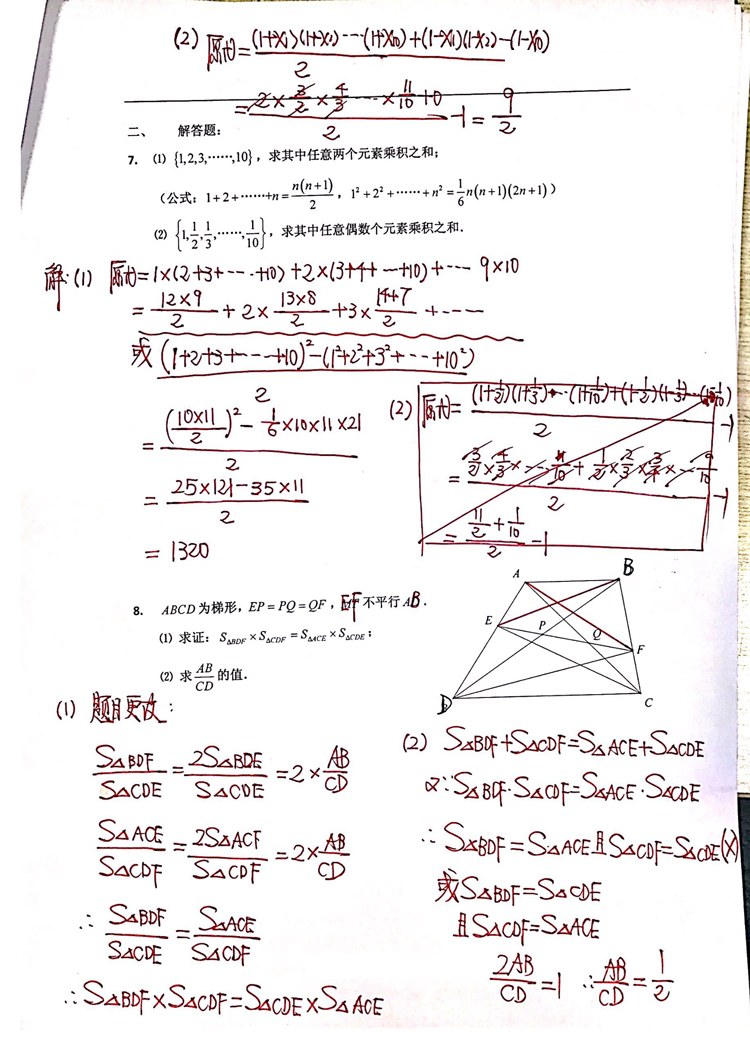 (2) 原式=((1+x₁)(1+x₂)……(1+x₁₀)+(1-x₁)(1-x₂)…(1-x₁₀))/2
=(2×3/2×4/3…×11/10+0)/2-1=9/2
二、 解答题：
7. (1) {1,2,3,……,10}，求其中任意两个元素乘积之和；
（公式：1+2+……+n=n(n+1)/2，1²+2²+……+n²=1/6n(n+1)(2n+1)）
(2) {1,1/2,1/3,……,1/10}，求其中任意偶数个元素乘积之和．
解:(1) 原式=1×(2+3+…+10)+2×(3+4+…+10)+… 9×10
=12×9/2+2×13×8/2+3×14+7/2+……
或 ((1+2+3+……+10)²-(1²+2²+3²+…+10²))/2
=((10×11/2)²-1/6×10×11×21)/2
=(25×121-35×11)/2
=1320
(2) 原式=((1+1/2)(1+1/3)…(1+1/10)+(1-1/2)(1-1/3)…(1-1/10))/2-1
=(3/2×4/3×…11/10+1/2×2/3×3/4×…9/10)/2-1
=(11/2+1/10)/2-1
8. ABCD为梯形，EP=PQ=QF，EF不平行AB．
(1) 求证：S△BDF×S△CDF=S△ACE×S△CDE；
(2) 求AB/CD的值．
A B E P Q F D C
(1) 题目更改:
S△BDF/S△CDE=2S△BDE/S△CDE=2×AB/CD
S△ACE/S△CDF=2S△ACF/S△CDF=2×AB/CD
∴ S△BDF/S△CDE=S△ACE/S△CDF
∴S△BDF×S△CDF=S△CDE×S△ACE
(2) S△BDF+S△CDF=S△ACE+S△CDE
又∵S△BDF·S△CDF=S△ACE·S△CDE
∴S△BDF=S△ACE且S△CDF=S△CDE(X)
或S△BDF=S△CDE
且S△CDF=S△ACE
2AB/CD=1 ∴AB/CD=1/2